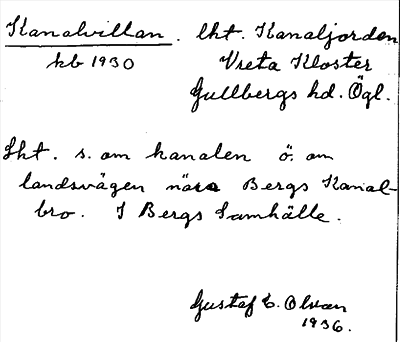 Kanalvillan. lht. Kanaljorden
kb 1930 Vreta Kloster
Gullbergs hd. Ögl.
Lht. s. om kanalen ö. om
landsvägen nära Bergs Kanal-
bro. I Bergs Samhälle.
Gustaf E. Olsson
1936.